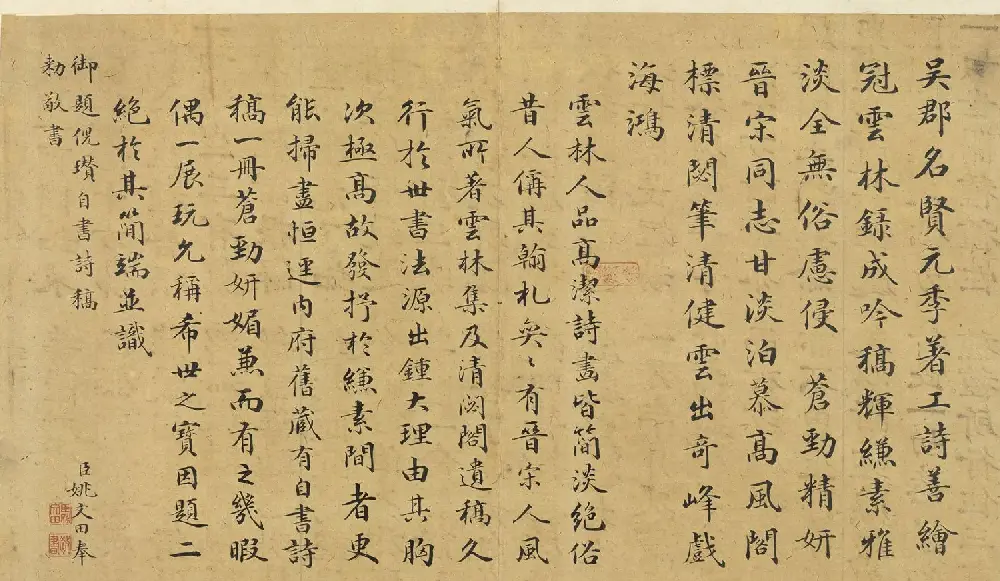 吳郡名賢元季著工詩善繪
冠雲林錄成吟稿輝縑素雅
淡全無俗慮侵 蒼勁精妍
晉宋同志甘淡泊慕高風閣
標清閟筆清健雲出奇峰戲
海鴻
雲林人品高潔詩畫皆簡淡絕俗
昔人偁其翰札奕〻有晉宋人風
氣所著雲林集及清閟閣遺稿久
行於世書法源出鍾大理由其胸
次極高故發抒於縑素間者更
能掃盡恒逕內府舊藏有自書詩
稿一冊蒼勁妍媚兼而有之幾暇
偶一展玩允稱希世之寶因題二
絕於其簡端並識
御題倪瓚自書詩稿
臣姚文田奉
敕敬書